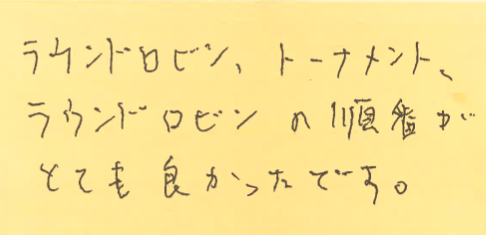 ラウンドロビン、トーナメント、
ラウンドロビンの順番が
とても良かったです。